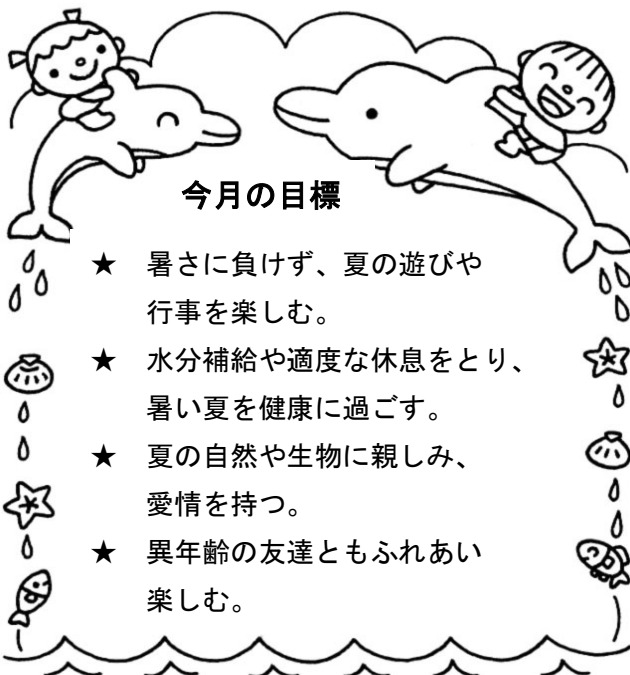 今月の目標
★ 暑さに負けず、夏の遊びや
行事を楽しむ。
★ 水分補給や適度な休息をとり、
暑い夏を健康に過ごす。
★ 夏の自然や生物に親しみ、
愛情を持つ。
★ 異年齢の友達ともふれあい
楽しむ。